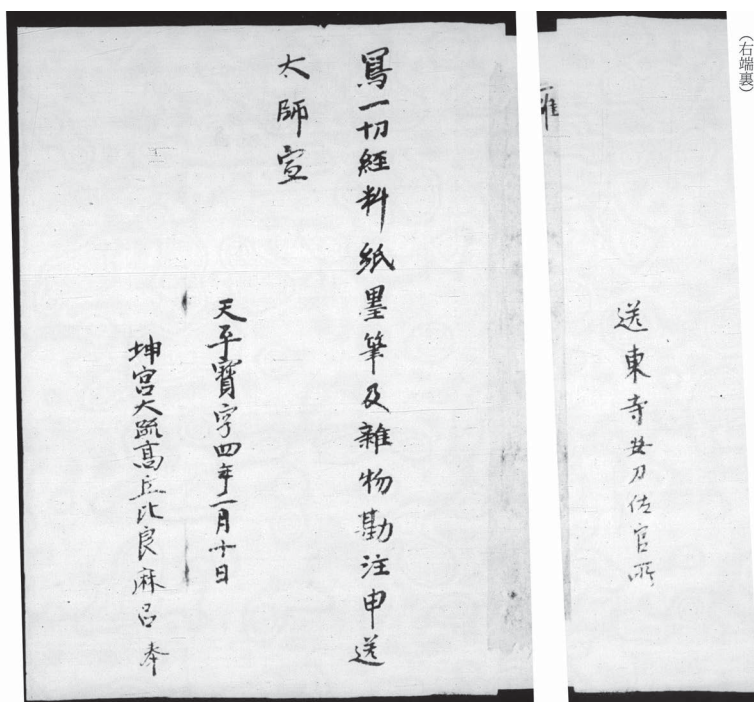 （右端裏）
送東寺安刀佐官所
寫一切經料紙墨筆及雜物勘注申送
太師宣
天平寶字四年二月十日
坤宮大疏高丘比良麻呂奉